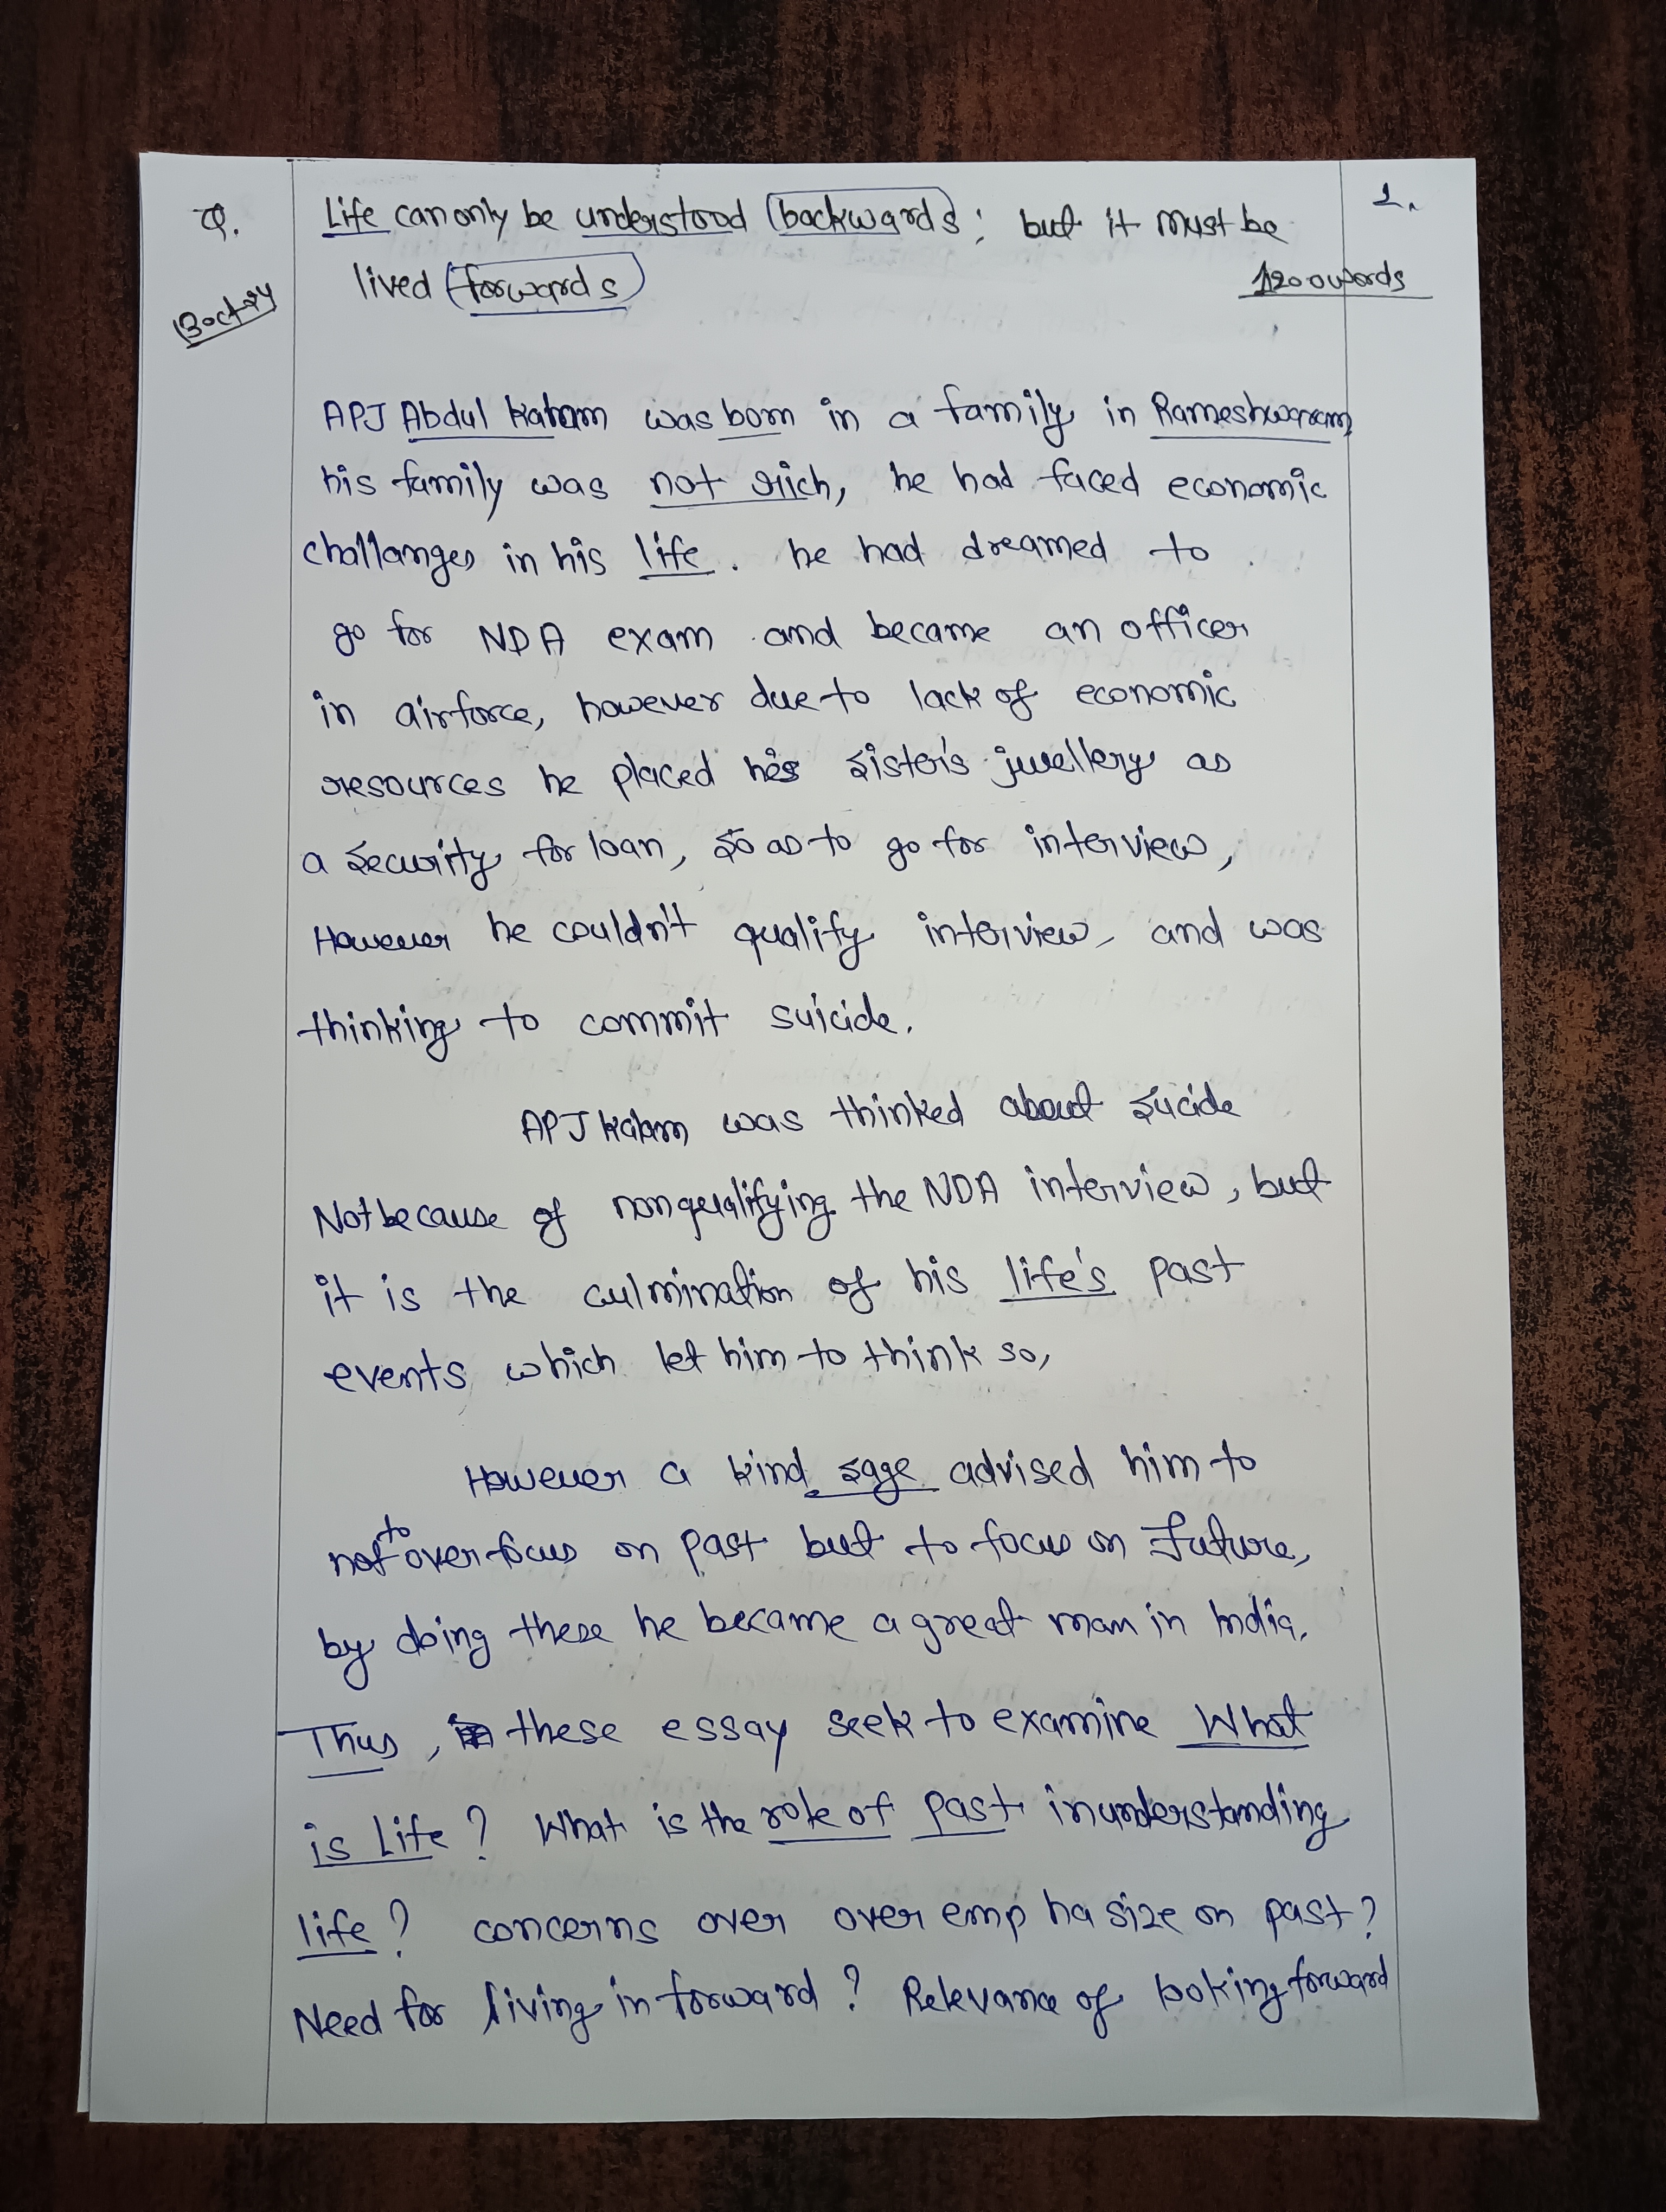 Q. Life can only be understood (backwards); but it must be 1.
lived (forwards) 1200 words
13 oct 24
APJ Abdul Kalam was born in a family in Rameshwaram
his family was not rich, he had faced economic
challanges in his life. he had dreamed to
go for NDA exam and became an officer
in airforce, however due to lack of economic
resources he placed his sister's jwellery as
a security for loan, so as to go for interview,
However he couldn't qualify interview, and was
thinking to commit suicide.
APJ Kalam was thinked about sucide
Not because of nonqualifying the NDA interview, but
it is the culmination of his life's past
events which let him to think so,
However a kind sage advised him to
not to overfocus on past but to focus on Future,
by doing these he became a great man in India.
Thus, these essay seek to examine What
is Life? What is the role of past in understanding
life? concerns over over emphasize on past?
Need for living in forward? Relevance of looking forward